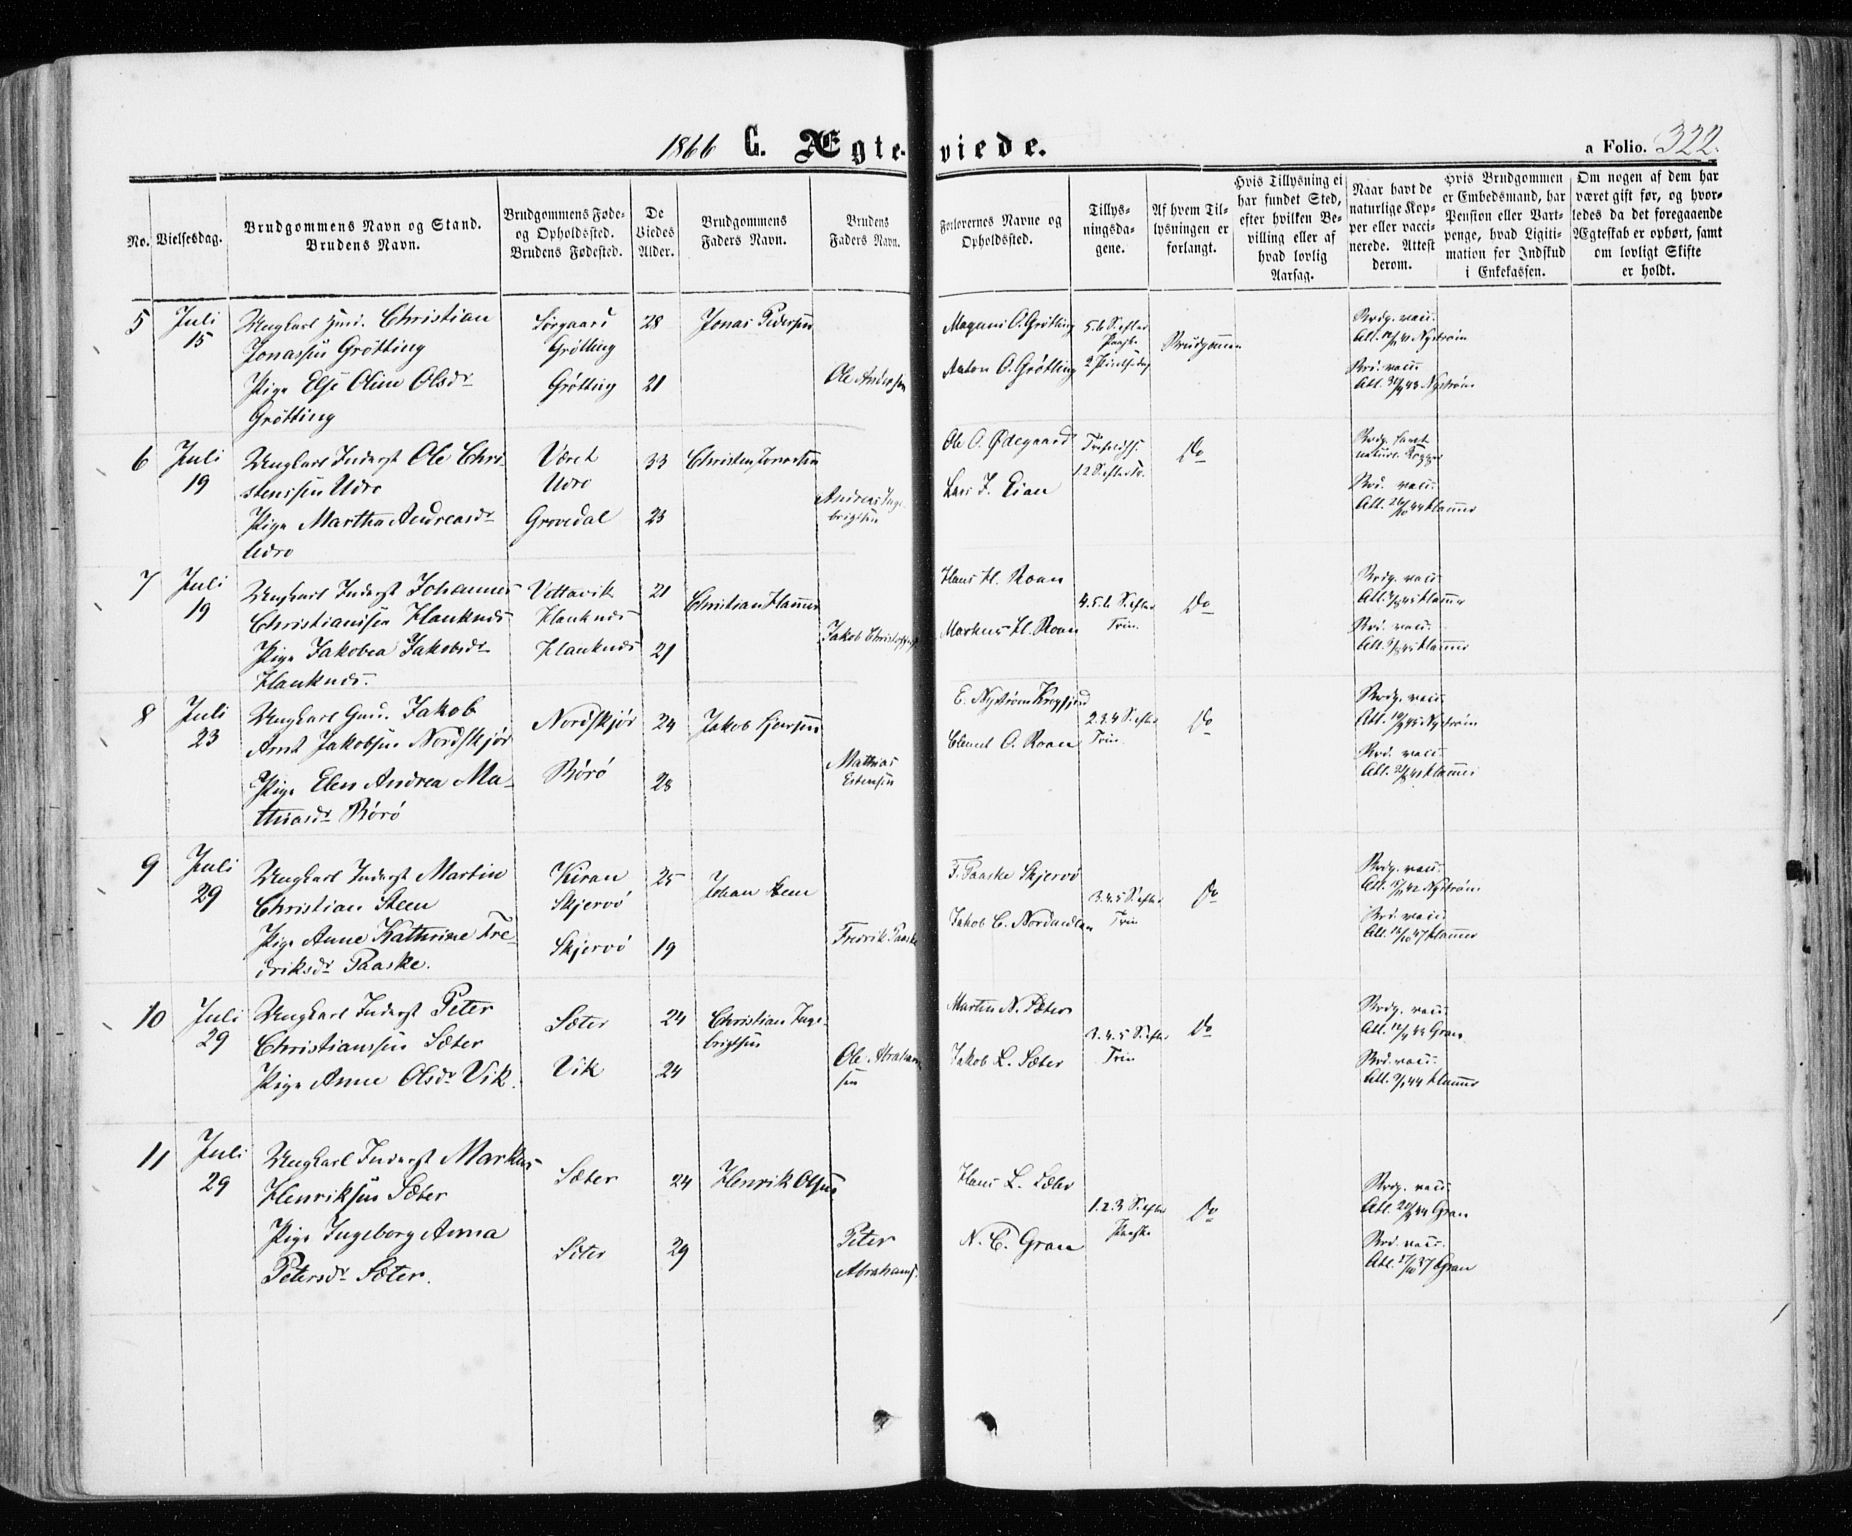 1866 C. Ægteviede. a Folio. 322.
No.
Vielsesdag.
Brudgommens Navn og Stand.
Brudens Navn.
Brudgommens Føde-
og Opholdssted.
Brudens Fødested.
De
Viedes
Alder.
Brudgommens
Faders Navn.
Brudens
Faders Navn.
Forlovernes Navne og
Opholdssted.
Tillys-
ningsda-
gene.
Af hvem Til-
lysningen er
forlangt.
Hvis Tillysning ei
har fundet Sted,
efter hvilken Be-
villing eller af
hvad lovlig
Aarsag.
Naar havt de
naturlige Kop-
per eller vacci-
nerede. Attest
derom.
Hvis Brudgommen
er Embedsmand, har
Pension eller Vart-
penge, hvad Ligiti-
mation for Indskud
i Enkekassen.
Om nogen af dem har
været gift før, og hvor-
ledes da det foregaaende
Ægteskab er ophørt, samt
om lovligt Skifte
er holdt.
5 Juli 15
Ungkarl Christian
Jonassen Grötting
Pige Else Oline Olsdr
Grötting
Sörgaard
Grötting
Grötting
28
21
Jonas Pedersen
Ole Andersen
Magnus O. Grötting
Anton O. Grötting
5.6 S. efter
Paaske
2 Pindsedag
Brudgommen
Brdg. vacc.
Att. Nyström
Brd. vacc.
Att. Nyström
6 Juli 19
Ungkarl Inderst Ole Chri-
stensen Udro
Pige Martha Andreasdr
Udro
Været
Udro
Grovedal
33
23
Christen Jonassen
Andreas Inge-
brigtsen
Ole O. Ødegaard
Lars J. Eian
1.2 S. efter Tr.
Do
Brdg. havt
naturl. Kopper
Brd. vacc.
Att. Klamer
7 Juli 19
Ungkarl Inderst Johannes
Christianssen Hanknes
Pige Jakobea Jakobsdr
Hanknes.
Vettavik
Hanknes
Hanknes
21
21
Christian Hamer
Jakob
Hans H. Roan
Markus H. Roan
4.5.6 S. efter
Trin.
Do
Brdg. vacc.
Att. Klamer
Brd. vacc.
Att. Klamer
8 Juli 23
Ungkarl Jakob
Arnt Jakobsen Nordskjör
Pige Elen Andrea Ma-
thiasdr Börö
Nordskjör
Börö
24
28
Jakob
Mathias
Estensen
E. Nyström
Clemet O. Roan
2.3.4 S. efter
Trin.
Do
Brdg. vacc.
Att. Nyström
Brd. vacc.
Att. Klamer
9 Juli 29
Ungkarl Inderst Martin
Christian Steen
Pige Anne Kathrine Fre-
driksdr Paaske.
Kiran
Skjervö
Skjervö
25
19
Johan Steen
Fredrik Paaske
F. Paaske Skjervö
Jakob C. Nordandlan
3.4.5 S. efter
Trin
Do
Brdg. vacc.
Att. Nyström
Brd. vacc.
Att. Klamer
10 Juli 29
Ungkarl Inderst Peter
Christianssen Sæter
Pige Anne Olsdr Vik.
Sæter
Vik
24
24
Christian Inge-
brigtsen
Ole Abraham-
sen
Martin N. Sæter
Jakob L. Sæter
3.4.5 S. efter
Trin
Do
Brdg. vacc.
Att. Gran
Brd. vacc.
Att. Klamer
11 Juli 29
Ungkarl Inderst Markus
Henriksen Sæter
Pige Ingeborg Anna
Petersdr Sæter.
Sæter
Seter
24
29
Henrik Olsen
Peter
Abrahams.
Hans L. Sæter
N. C. Gran
1.2.3 S. efter
Paaske
Do
Brdg. vacc.
Att. Gran
Brd. vacc.
Att. Gran